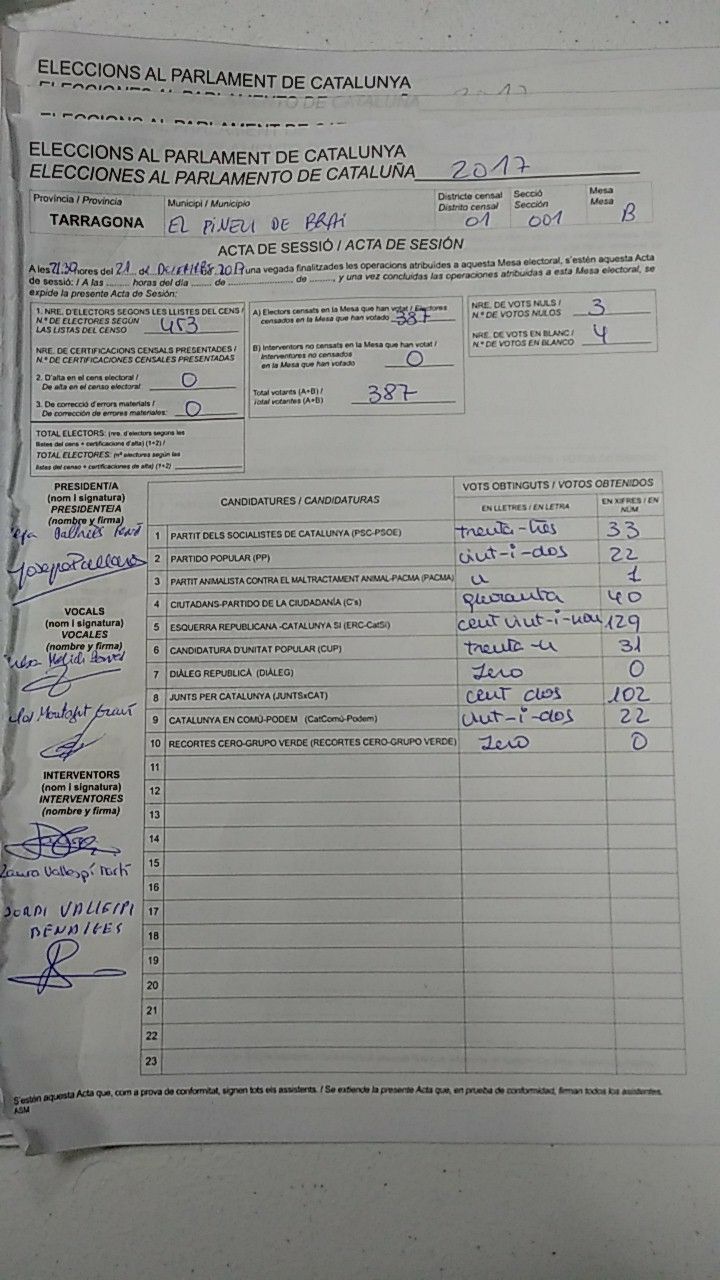 ELECCIONS AL PARLAMENT DE CATALUNYA
ELECCIONS AL PARLAMENT DE CATALUNYA
ELECCIONES AL PARLAMENTO DE CATALUÑA 2017
Provincia / Provincia
TARRAGONA
Municipi / Municipio
EL PINELL DE BRAI
Districte censal
Distrito censal
01
Secció
Sección
001
Mesa
Mesa
B
ACTA DE SESSIÓ / ACTA DE SESIÓN
A les 21:30 hores del 21 de DESEMBRE 2017 una vegada finalitzades les operacions atribuïdes a aquesta Mesa electoral, s'estén aquesta Acta
de sessió: / A las ........ horas del día ....... de ........................ de ........, y una vez concluidas las operaciones atribuidas a esta Mesa electoral, se
expide la presente Acta de Sesión:
1. NRE. D'ELECTORS SEGONS LES LLISTES DEL CENS /
N.º DE ELECTORES SEGÚN
LAS LISTAS DEL CENSO 453
NRE. DE CERTIFICACIONS CENSALS PRESENTADES /
N.º DE CERTIFICACIONES CENSALES PRESENTADAS
2. D'alta en el cens electoral /
De alta en el censo electoral 0
3. De correcció d'errors materials /
De corrección de errores materiales: 0
TOTAL ELECTORS: (nre. d'electors segons les
llistes del cens + certificacions d'alta) (1+2) /
TOTAL ELECTORES: (nº electores según las
listas del censo + certificaciones de alta) (1+2)
A) Electors censats en la Mesa que han votat / Electores
censados en la Mesa que han votado 387
B) Interventors no censats en la Mesa que han votat /
Interventores no censados
en la Mesa que han votado 0
Total votants (A+B) /
Total votantes (A+B) 387
NRE. DE VOTS NULS /
N.º DE VOTOS NULOS 3
NRE. DE VOTS EN BLANC /
N.º DE VOTOS EN BLANCO 4
PRESIDENT/A
(nom i signatura)
PRESIDENTE/A
(nombre y firma)
VOCALS
(nom i signatura)
VOCALES
(nombre y firma)
INTERVENTORS
(nom i signatura)
INTERVENTORES
(nombre y firma)
Laura Vallespí Martí
JORDI VALLESPI
BENAIGES
CANDIDATURES / CANDIDATURAS
VOTS OBTINGUTS / VOTOS OBTENIDOS
EN LLETRES / EN LETRA
EN XIFRES / EN NÚM
1 PARTIT DELS SOCIALISTES DE CATALUNYA (PSC-PSOE) trenta-tres 33
2 PARTIDO POPULAR (PP) vint-i-dos 22
3 PARTIT ANIMALISTA CONTRA EL MALTRACTAMENT ANIMAL-PACMA (PACMA) u 1
4 CIUTADANS-PARTIDO DE LA CIUDADANÍA (C's) quaranta 40
5 ESQUERRA REPUBLICANA -CATALUNYA SÍ (ERC-CatSí) cent vint-i-nou 129
6 CANDIDATURA D'UNITAT POPULAR (CUP) trenta-u 31
7 DIÀLEG REPUBLICÀ (DIÀLEG) Zero 0
8 JUNTS PER CATALUNYA (JUNTSxCAT) cent dos 102
9 CATALUNYA EN COMÚ-PODEM (CatComú-Podem) vint-i-dos 22
10 RECORTES CERO-GRUPO VERDE (RECORTES CERO-GRUPO VERDE) Zero 0
11
12
13
14
15
16
17
18
19
20
21
22
23
S'estén aquesta Acta que, com a prova de conformitat, signen tots els assistents. / Se extiende la presente Acta que, en prueba de conformidad, firman todos los asistentes.
ASM